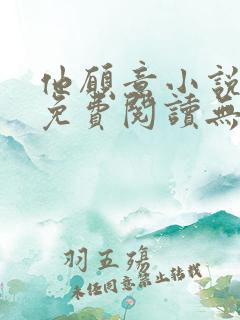 他願意小說
免費閱讀無
羽五殤
未任同意禁止轉載